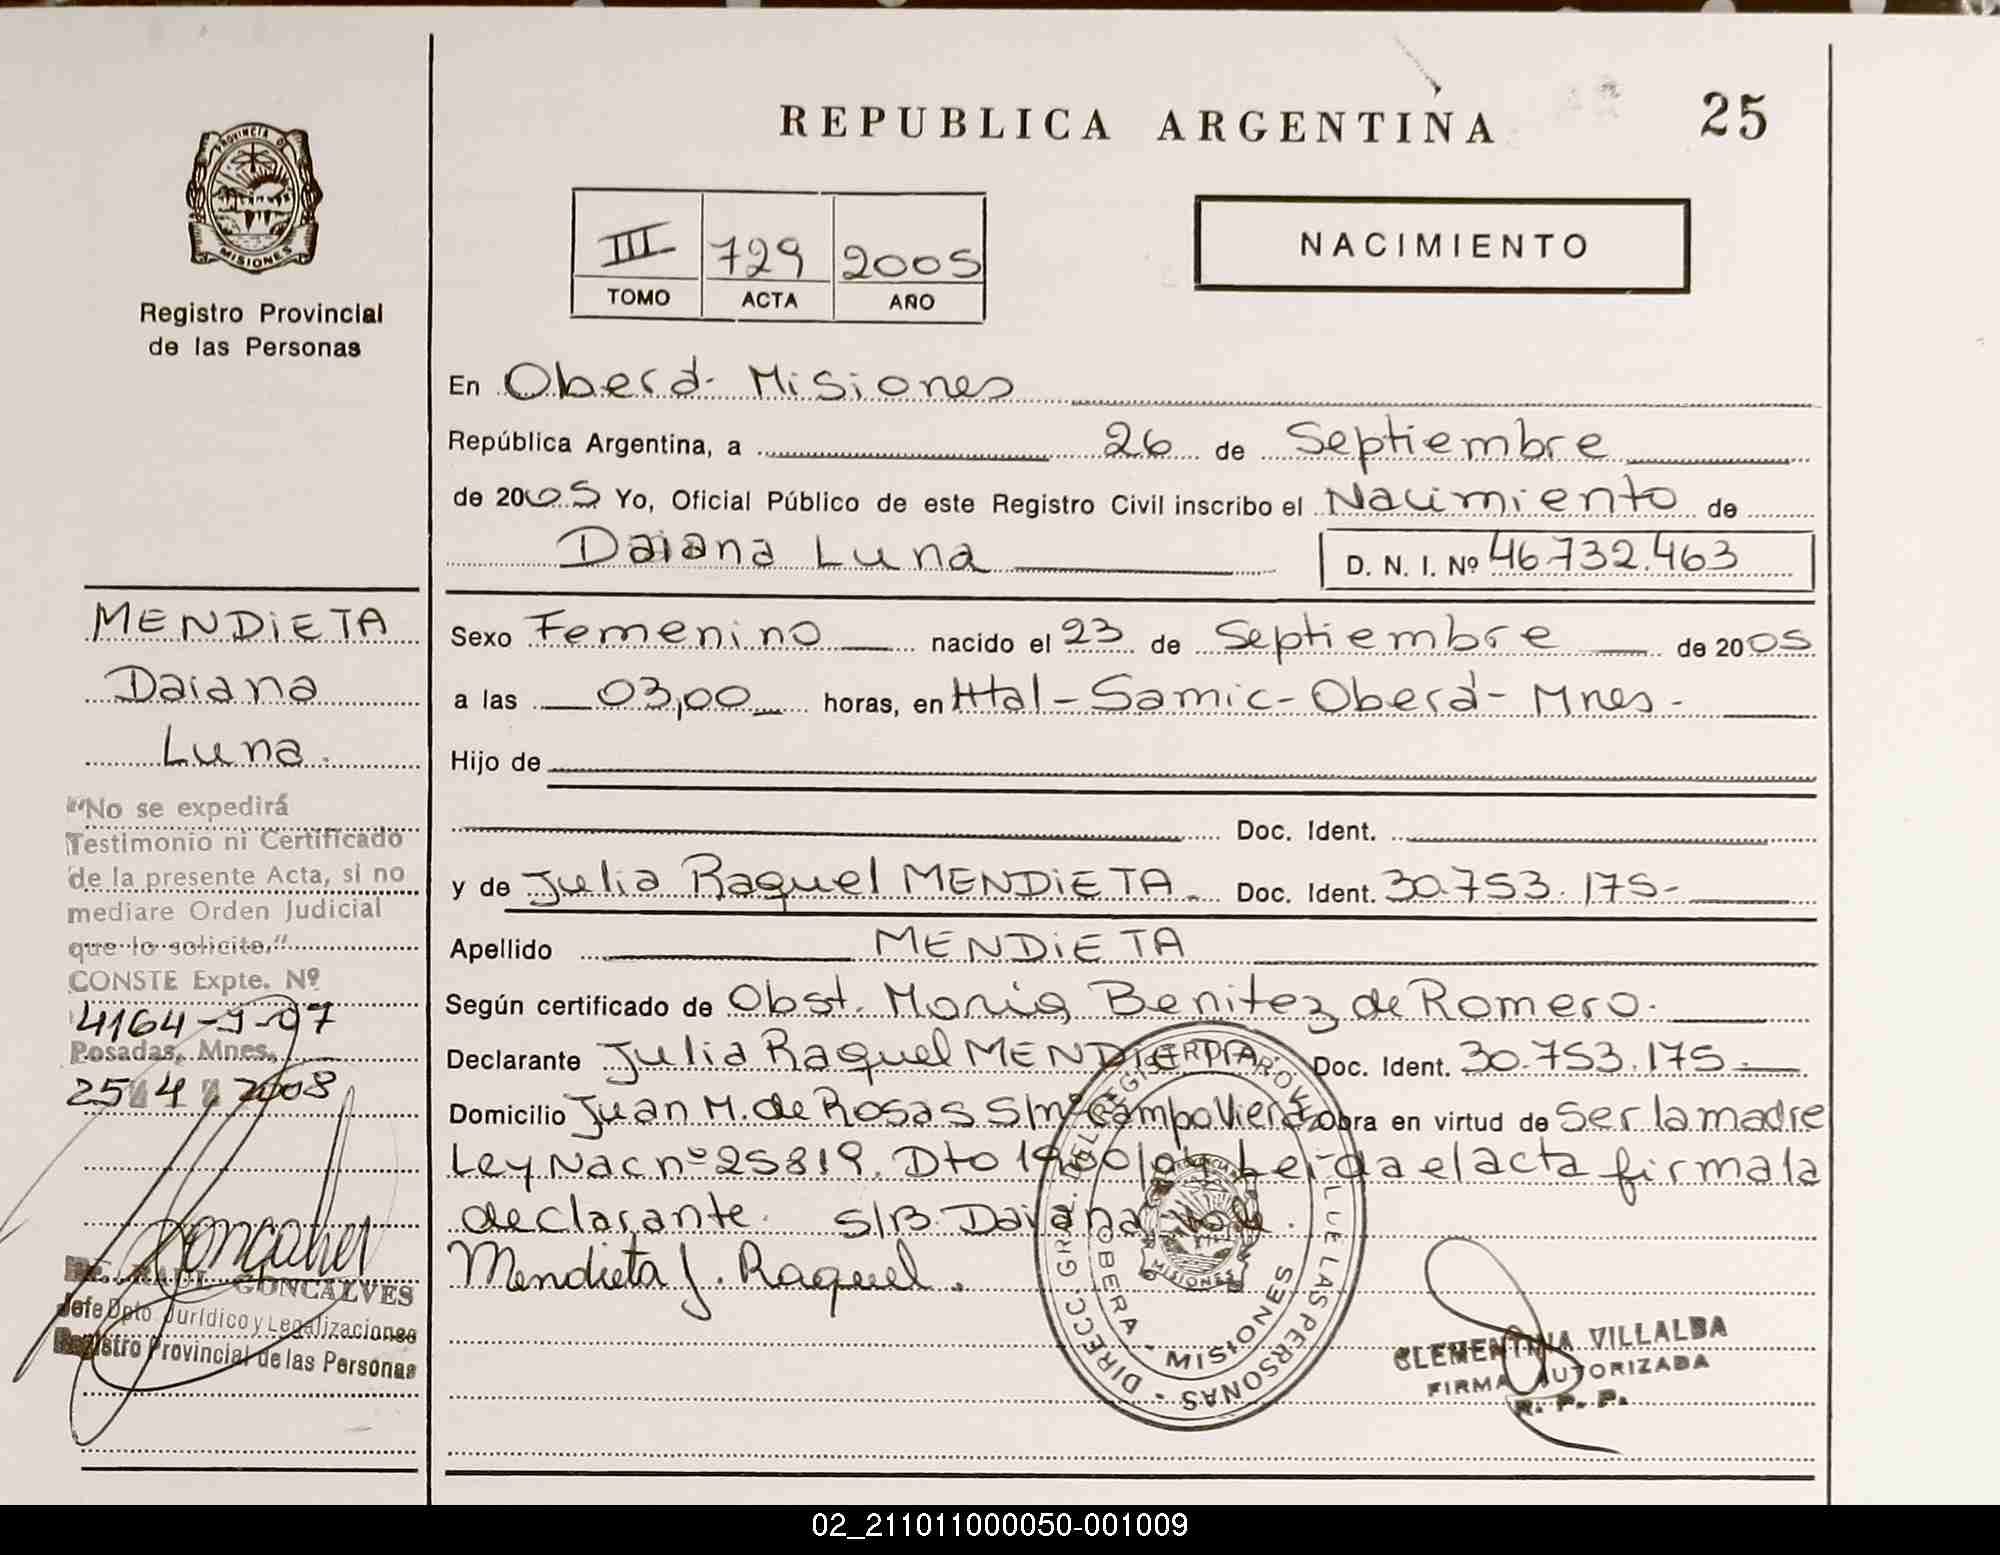 REPUBLICA ARGENTINA
25
PROVINCIA D
MISIONES
Registro Provincial
de las Personas
III 729 2005
TOMO ACTA AÑO
NACIMIENTO
En Oberá- Misiones
República Argentina, a 26 de Septiembre
de 2005 Yo, Oficial Público de este Registro Civil inscribo el Nacimiento de
Daiana Luna
D. N. I. Nº 46.732.463
Sexo Femenino nacido el 23 de Septiembre de 2005
a las 03,00 horas, en Htal-Samic-Oberá-Mnes-
Hijo de
Doc. Ident.
y de Julia Raquel MENDiETA. Doc. Ident. 30.753.175-
Apellido MENDiETA
Según certificado de Obst. Maria Benitez de Romero.
Declarante Julia Raquel MENDiETA Doc. Ident. 30.753.175-
Domicilio Juan M. de Rosas S/nº Campo Viera obra en virtud de Ser la madre
Ley Nac nº 25819. Dto 1900/04 Leida el acta firma la
declarante. S/B. Daiana Vale.
Mendieta J. Raquel.
MENDiETA
Daiana
Luna.
"No se expedirá
Testimonio ni Certificado
de la presente Acta, si no
mediare Orden Judicial
que lo solicite,"
CONSTE Expte. Nº
4164-J-07
Posadas, Mnes,
25 4 2008
Goncalves
RAUL GONCALVES
Jefe Dpto Jurídico y Legalizaciones
Registro Provincial de las Personas
DIRECC. GRAL. DEL REGISTRO PROV. DE LAS PERSONAS -
OBERA - MISIONES
MISIONES
CLEMENTINA VILLALBA
FIRMA AUTORIZADA
R. P. P.
02_211011000050-001009